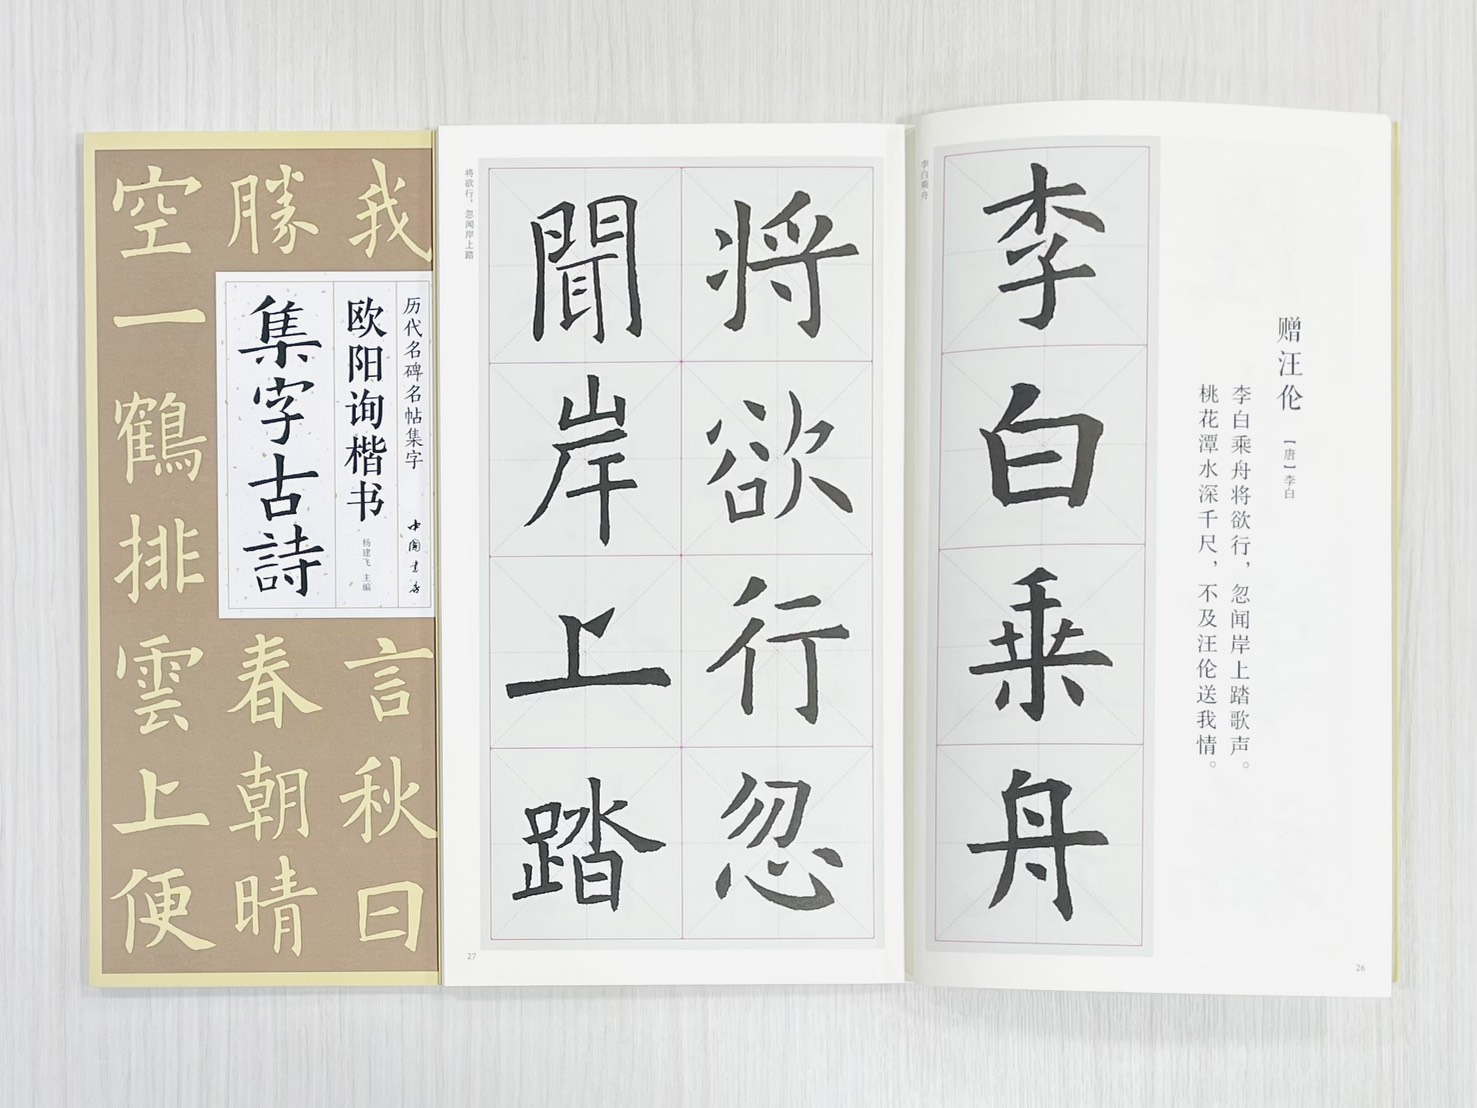 我言秋日
勝春朝晴
空一鶴排雲上便
历代名碑名帖集字
中国书店
欧阳询楷书
杨建飞 主编
集字古詩
赠汪伦
【唐】李白
李白乘舟将欲行，忽闻岸上踏歌声。
桃花潭水深千尺，不及汪伦送我情。
李白乘舟
李白乘舟
26
将欲行忽
聞岸上踏
将欲行，忽闻岸上踏
27